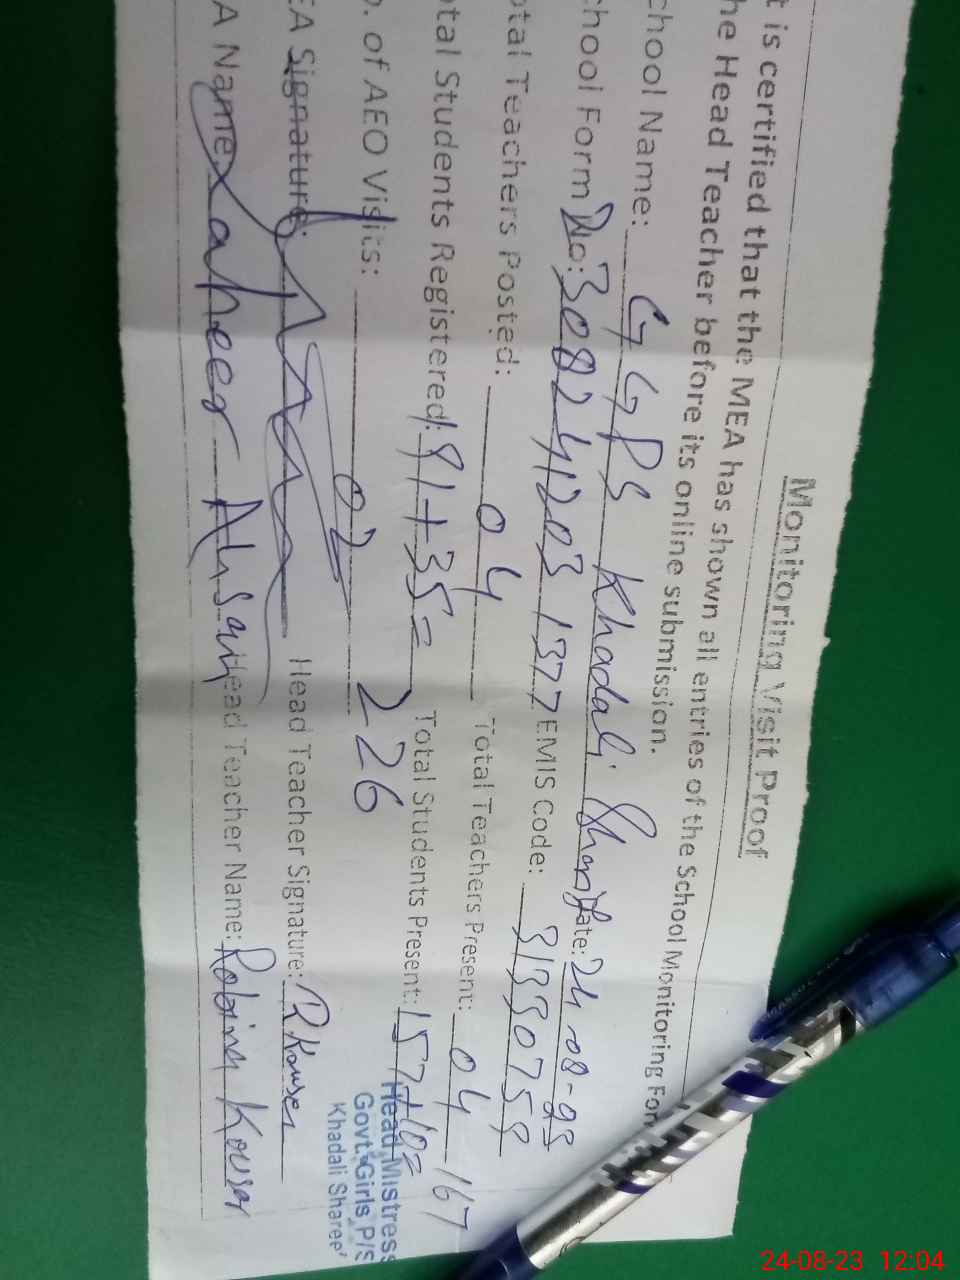 Monitoring Visit Proof
t is certified that the MEA has shown all entries of the School Monitoring Form
he Head Teacher before its online submission.
chool Name: GGPS Khadali Date: 24-08-
chool Form No: 30824 1203 1377 EMIS Code: 31330758
otal Teachers Posted: 04 Total Teachers Present: 04
otal Students Registered: +35= 226 Total Students Present: 157+10= 167
. of AEO Visits: 02
EA Signature: Head Teacher Signature: R Kouser
A Name: Zaheer Ahsan Head Teacher Name: Robina Kouser
Head Mistress
Govt. Girls P/S
Khadali Sharee
24-08-23 12:04